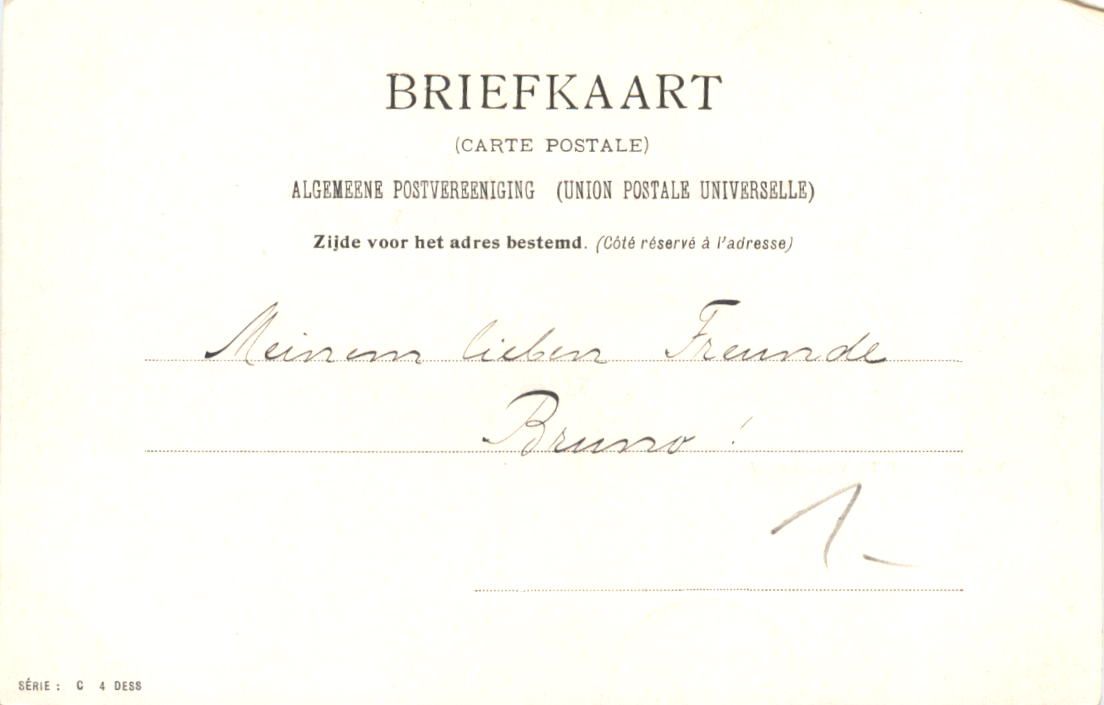 BRIEFKAART
(CARTE POSTALE)
ALGEMEENE POSTVEREENIGING (UNION POSTALE UNIVERSELLE)
Zijde voor het adres bestemd. (Côté réservé à l'adresse)
Meinem lieben Freunde
Bruno !
1-
SÉRIE : C 4 DESS